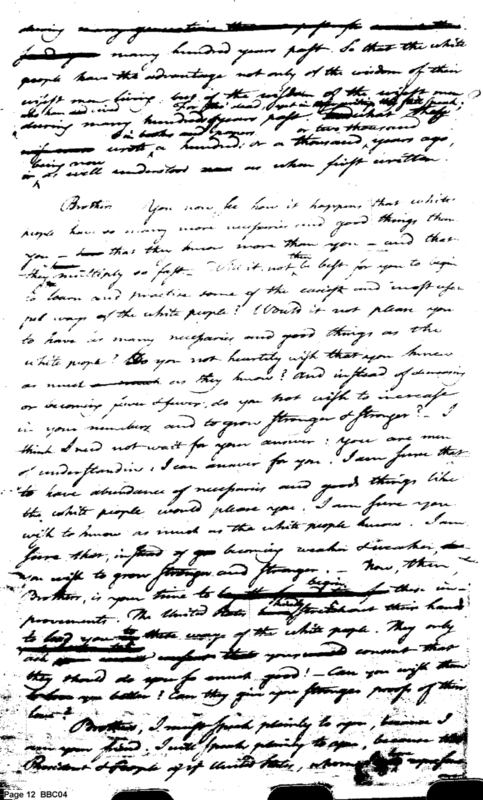 many hundred years past. So that the white
people have the advantage not only of the wisdom of their
wisest men living: but of the wisdom of the wisest men
who have died
during many hundred years past. what they
in books and papers or two thousand
wrote a hundred, or a thousand, years ago,
being now
is as well understood as when first written.
Brothers You now see how it happens that white
people have so many more necessaries and good things than
you — that they know more than you — and that
they multiply so fast. Will it not be best for you to begin
to learn and practise some of the easiest and most use-
ful ways of the white people? Would it not please you
to have as many necessaries and good things as the
white people? Do you not heartily wish that you knew
as much as they know? And instead of decreasing
or becoming fewer & fewer, do you not wish to increase
in your numbers and to grow stronger & stronger? — I
think I need not wait for your answer: you are men
of understanding: I can answer for you. I am sure that
to have abundance of necessaries and good things like
the white people would please you. I am sure you
wish to know as much as the white people know. I am
sure that, instead of becoming weaker & weaker,
you wish to grow stronger and stronger. — Now, then,
begin
Brothers, is your time to these im-
provements. The United States stretch out their hand
to lead you to these ways of the white people. They only
ask that you would consent that
they should do you so much good! — Can you wish them
to love you better? Can they give you stronger proofs of their
love?
Brothers, I must speak plainly to you, because I
am your friend. I will speak plainly to you, because the
President & People of ye United States, whom represent
Page 12 BBC04